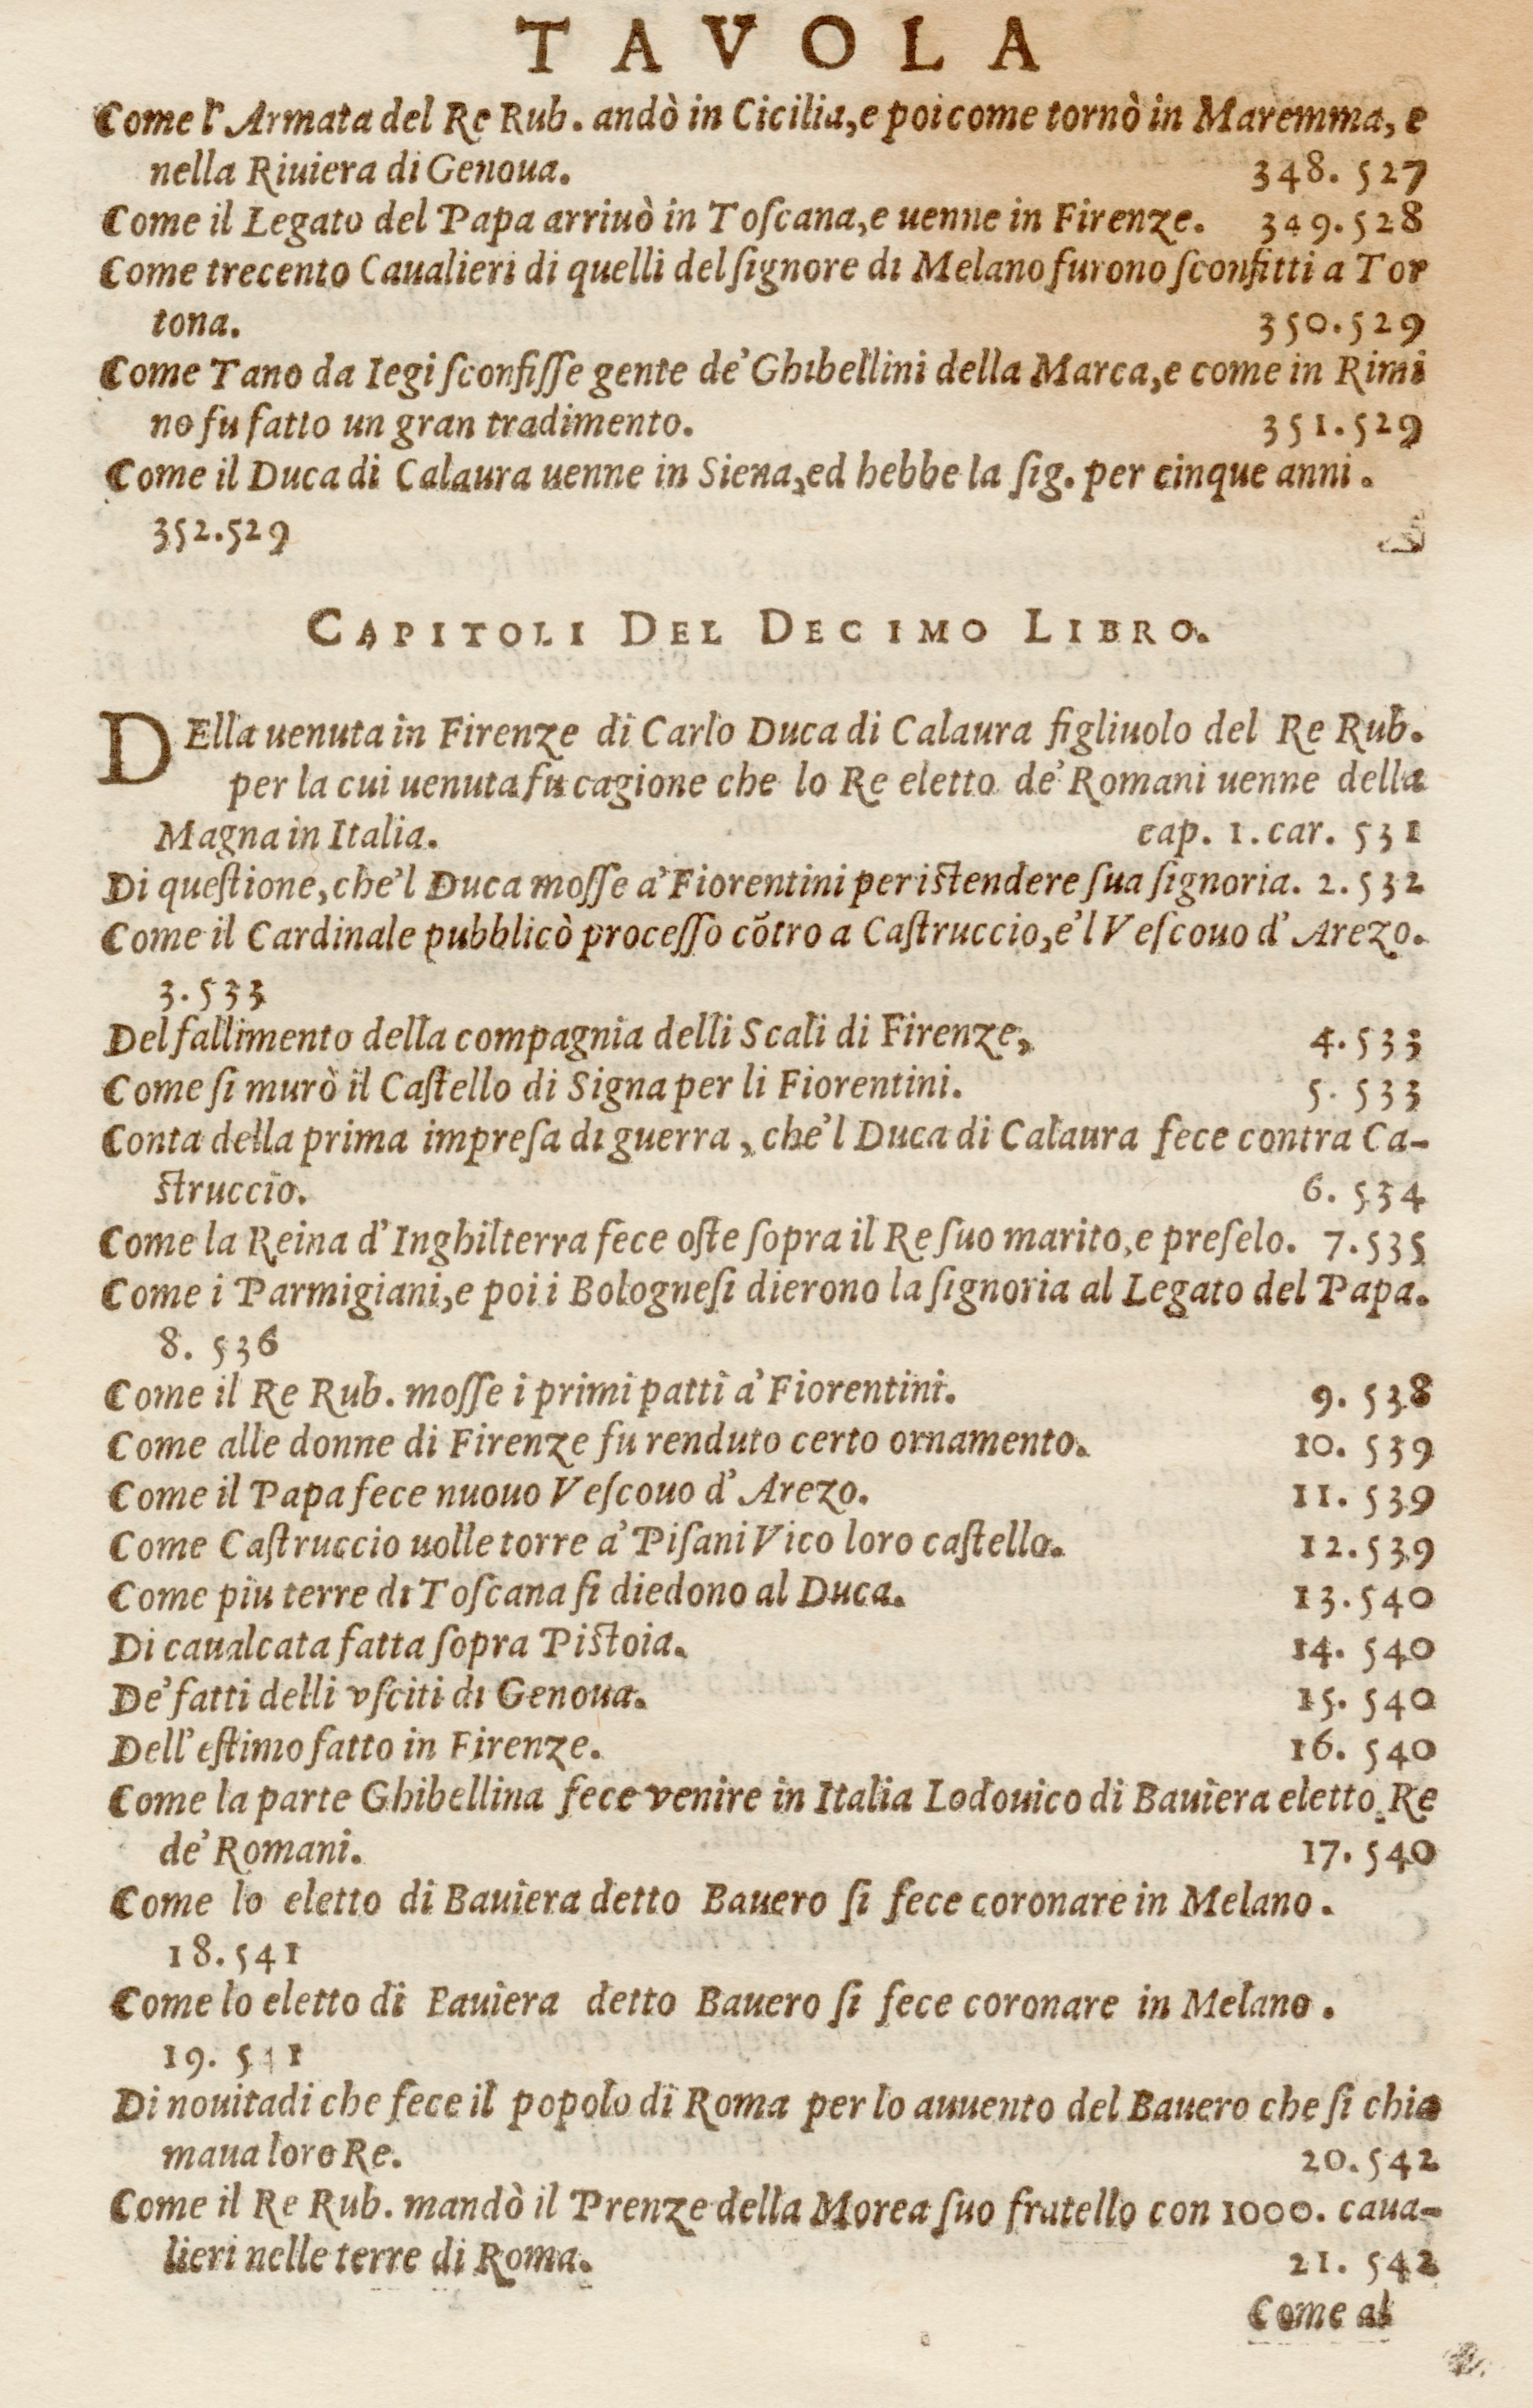 TAVOLA
Come l'Armata del Re Rub. andò in Cicilia, e poi come tornò in Maremma, e
nella Riuiera di Genoua. 348. 527
Come il Legato del Papa arriuò in Toſcana, e uenne in Firenze. 349. 528
Come trecento Caualieri di quelli del ſignore di Melano furono ſconfitti a Tor
tona. 350. 529
Come Tano da Iegi ſconfiſſe gente de' Ghibellini della Marca, e come in Rimi
no fu fatto un gran tradimento. 351. 529
Come il Duca di Calaura uenne in Siena, ed hebbe la ſig. per cinque anni.
352. 529
CAPITOLI DEL DECIMO LIBRO.
DElla uenuta in Firenze di Carlo Duca di Calaura figliuolo del Re Rub.
per la cui uenuta fu cagione che lo Re eletto de' Romani uenne della
Magna in Italia. cap. 1. car. 531
Di queſtione, che'l Duca moſſe a' Fiorentini per iſtendere ſua ſignoria. 2. 532
Come il Cardinale pubblicò proceſſo cõtro a Caſtruccio, e'l Veſcouo d'Arezo.
3. 533
Del fallimento della compagnia delli Scali di Firenze, 4. 533
Come ſi murò il Caſtello di Signa per li Fiorentini. 5. 533
Conta della prima impreſa di guerra, che'l Duca di Calaura fece contra Ca-
ſtruccio. 6. 534
Come la Reina d'Inghilterra fece oſte ſopra il Re ſuo marito, e preſelo. 7. 535
Come i Parmigiani, e poi i Bologneſi dierono la ſignoria al Legato del Papa.
8. 536
Come il Re Rub. moſſe i primi patti a' Fiorentini. 9. 538
Come alle donne di Firenze fu renduto certo ornamento. 10. 539
Come il Papa fece nuouo Veſcouo d'Arezo. 11. 539
Come Caſtruccio uolle torre a' Piſani Vico loro caſtello. 12. 539
Come piu terre di Toſcana ſi diedono al Duca. 13. 540
Di caualcata fatta ſopra Piſtoia. 14. 540
De' fatti delli vſciti di Genoua. 15. 540
Dell'eſtimo fatto in Firenze. 16. 540
Come la parte Ghibellina fece venire in Italia Lodouico di Bauiera eletto Re
de' Romani. 17. 540
Come lo eletto di Bauiera detto Bauero ſi fece coronare in Melano.
18. 541
Come lo eletto di Bauiera detto Bauero ſi fece coronare in Melano.
19. 541
Di nouitadi che fece il popolo di Roma per lo auuento del Bauero che ſi chia
maua loro Re. 20. 542
Come il Re Rub. mandò il Prenze della Morea ſuo fratello con 1000. caua-
lieri nelle terre di Roma. 21. 542
Come al